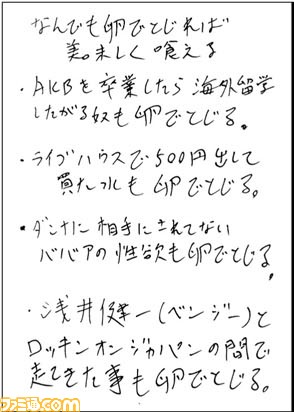 なんでも卵でとじれば
美味しく喰える
・AKBを卒業したら海外留学
したがる奴も卵でとじる。
・ライブハウスで500円出して
買た水も卵でとじる。
・ダンナに相手にされてない
ババアの性欲も卵でとじる。
・浅井健一(ベンジー)と
ロッキンオンジャパンの間で
起てきた事も卵でとじる。
ファミ通.com